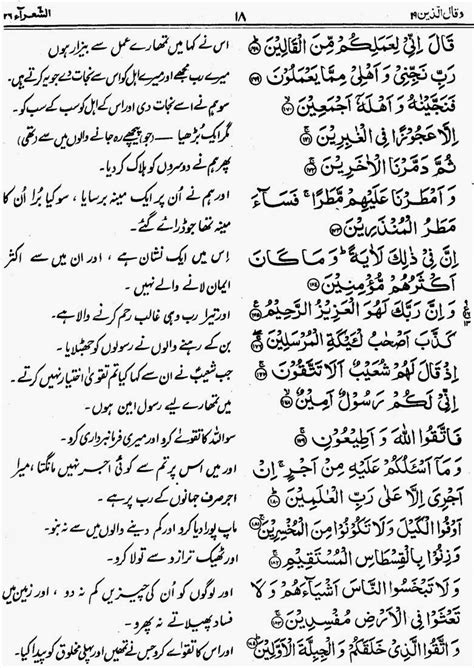 وقال الّذین ۱۹
۱۸
الشعرآء ۲۶
قَالَ اِنِّیْ لِعَمَلِكُمْ مِّنَ الْقَالِیْنَ ﴿۱۶۸﴾
رَبِّ نَجِّنِیْ وَ اَهْلِیْ مِمَّا یَعْمَلُوْنَ ﴿۱۶۹﴾
فَنَجَّیْنٰهُ وَ اَهْلَهٗۤ اَجْمَعِیْنَ ﴿۱۷۰﴾
اِلَّا عَجُوْزًا فِی الْغٰبِرِیْنَ ﴿۱۷۱﴾
ثُمَّ دَمَّرْنَا الْاٰخَرِیْنَ ﴿۱۷۲﴾
وَ اَمْطَرْنَا عَلَیْهِمْ مَّطَرًا ۚ فَسَآءَ
مَطَرُ الْمُنْذَرِیْنَ ﴿۱۷۳﴾
اِنَّ فِیْ ذٰلِكَ لَاٰیَةً ؕ وَ مَا كَانَ
اَكْثَرُهُمْ مُّؤْمِنِیْنَ ﴿۱۷۴﴾
وَ اِنَّ رَبَّكَ لَهُوَ الْعَزِیْزُ الرَّحِیْمُ ﴿۱۷۵﴾
كَذَّبَ اَصْحٰبُ لْـَٔیْكَةِ الْمُرْسَلِیْنَ ﴿۱۷۶﴾
اِذْ قَالَ لَهُمْ شُعَیْبٌ اَلَا تَتَّقُوْنَ ﴿۱۷۷﴾
اِنِّیْ لَكُمْ رَسُوْلٌ اَمِیْنٌ ﴿۱۷۸﴾
فَاتَّقُوا اللّٰهَ وَ اَطِیْعُوْنِ ﴿۱۷۹﴾
وَ مَاۤ اَسْـَٔلُكُمْ عَلَیْهِ مِنْ اَجْرٍ ۚ اِنْ
اَجْرِیَ اِلَّا عَلٰی رَبِّ الْعٰلَمِیْنَ ﴿۱۸۰﴾
اَوْفُوا الْكَیْلَ وَ لَا تَكُوْنُوْا مِنَ الْمُخْسِرِیْنَ ﴿۱۸۱﴾
وَ زِنُوْا بِالْقِسْطَاسِ الْمُسْتَقِیْمِ ﴿۱۸۲﴾
وَ لَا تَبْخَسُوا النَّاسَ اَشْیَآءَهُمْ وَ لَا
تَعْثَوْا فِی الْاَرْضِ مُفْسِدِیْنَ ﴿۱۸۳﴾
وَ اتَّقُوا الَّذِیْ خَلَقَكُمْ وَ الْجِبِلَّةَ الْاَوَّلِیْنَ ﴿۱۸۴﴾
اس نے کہا میں تمھارے عمل سے بیزار ہوں
میرے رب مجھے اور میرے اہل کو اس سے نجات دے جو یہ کرتے ہیں۔
سو ہم نے اسے نجات دی اور اس کے اہل کو سب کے سب کو۔
مگر ایک بڑھیا ـ (جو) پیچھے رہ جانے والوں میں سے (تھی)
پھر ہم نے دوسروں کو ہلاک کر دیا۔
اور ہم نے اُن پر ایک مینہ برسایا ، سو کیا بُرا اُن کا
مینہ تھا جو ڈرائے گئے۔
اس میں ایک نشان ہے ، اور ان میں سے اکثر
ایمان لانے والے نہیں۔
اور تیرا رب وہی غالب رحم کرنے والا ہے۔
بن کے رہنے والوں نے رسولوں کو جھٹلایا۔
جب شعیبؑ نے ان سے کہا کیا تم تقویٰ اختیار نہیں کرتے۔
میں تمھارے لیے رسول امین ہوں۔
سو اللہ کا تقوےٰ کرو اور میری فرمانبرداری کرو۔
اور میں اس پر تم سے کوئی اجر نہیں مانگتا، میرا
اجر صرف جہانوں کے رب پر ہے۔
ماپ پورا دیا کرو اور کم دینے والوں میں سے نہ بنو۔
اور ٹھیک ترازو سے تولا کرو۔
اور لوگوں کو اُن کی چیزیں کم نہ دو ، اور زمین میں
فساد پھیلاتے نہ پھرو۔
اور اس کا تقوےٰ کرو جس نے تمھیں اور پہلی مخلوق کو پیدا کیا۔